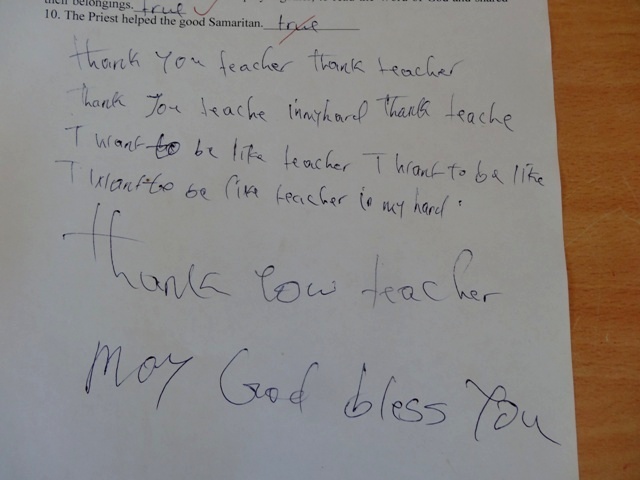 their belongings. true
10. The Priest helped the good Samaritan. true
thank you teacher thank teacher
Thank you teache inmyhard thank teache
I want to be like teacher I want to be like
I want to be like teacher in my hard.
thank you teacher
May God bless You